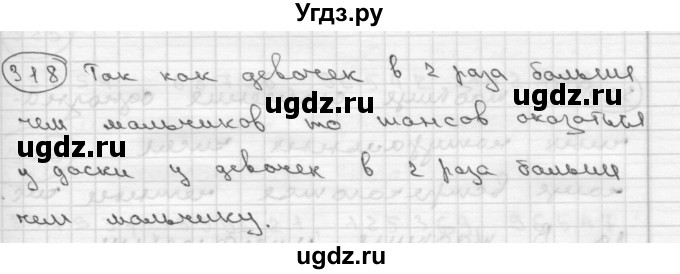 Угдз.ру
318 Так как девочек в 2 раза больше
чем мальчиков то шансов оказаться
у доски у девочек в 2 раза больше
чем мальчику.
ugdz.ru
ugdz.ru
ugdz.ru
ugdz.ru
ugdz.ru